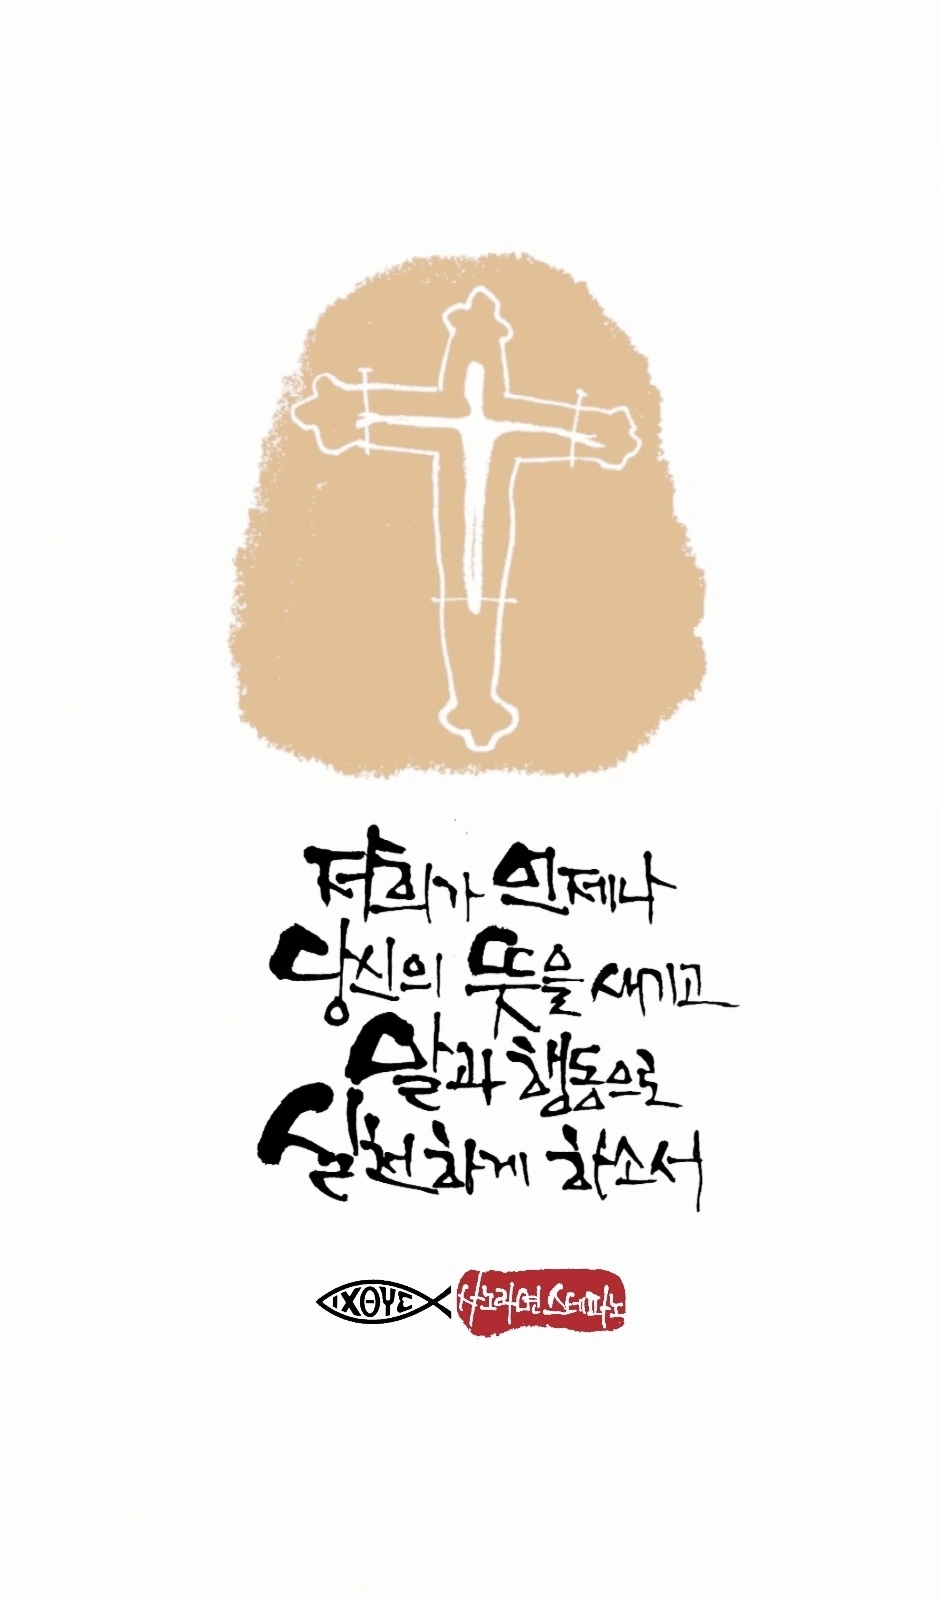 저희가 언제나
당신의 뜻을 새기고
말과 행동으로
실천하게 하소서
ΙΧΘΥΣ 사노라면 스테파노